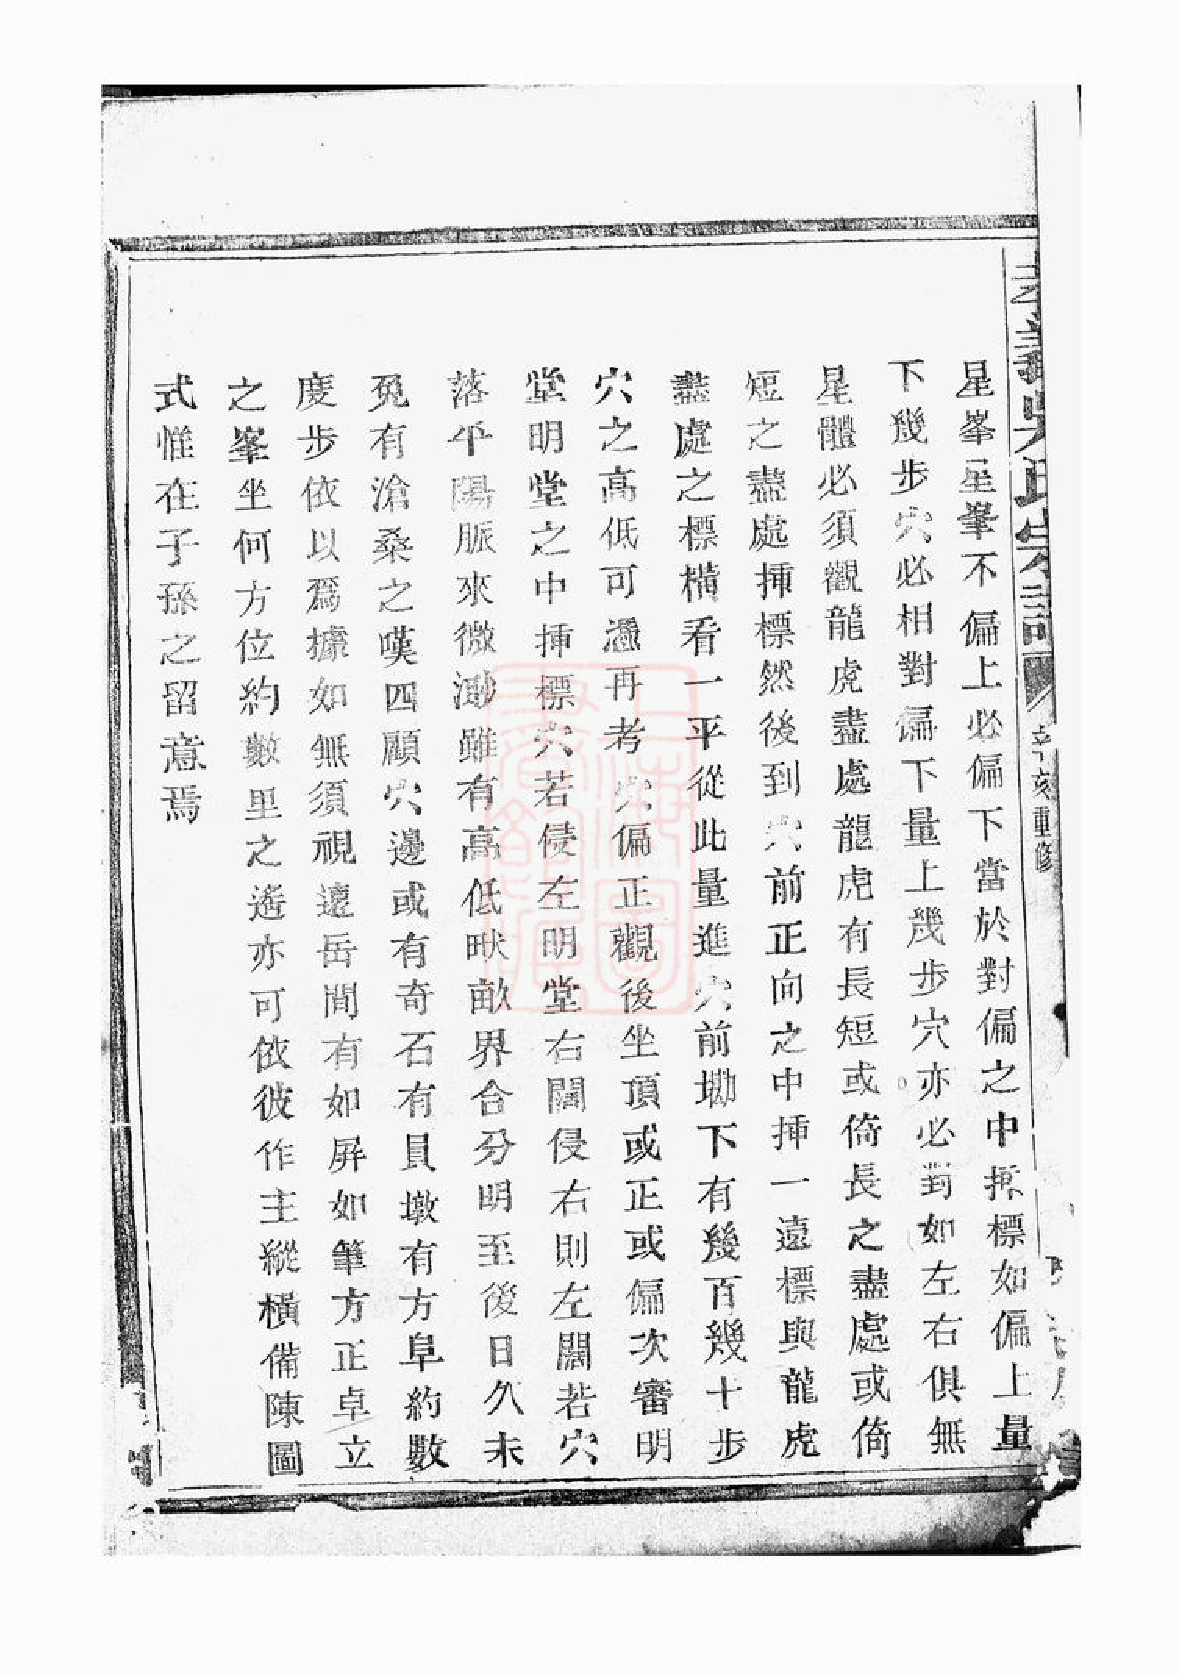 吳氏宗譜
重修
星峯星峯不偏上必偏下當於對偏之中標如偏上量
下幾步穴必相對偏下量上幾步穴亦必對如左右俱無
星體必須觀龍虎盡處龍虎有長短或倚長之盡處或倚
短之盡處揷標然後到穴前正向之中揷一遠標與龍虎
盡處之標橫看一平從此量進穴前墈下有幾百幾十步
穴之高低可憑再考穴偏正觀後坐頂或正或偏次審明
堂明堂之中揷標穴若侵左明堂右闊侵右則左闊若穴
落平陽脈來微渺雖有高低畎畝界合分明至後日久未
免有滄桑之嘆四顧穴邊或有奇石有員墩有方阜約數
度步依以爲據如無須視遠岳間有如屏如筆方正卓立
之峯坐何方位約數里之遙亦可依彼作主縱橫備陳圖
式惟在子孫之留意焉
上海圖
書館藏